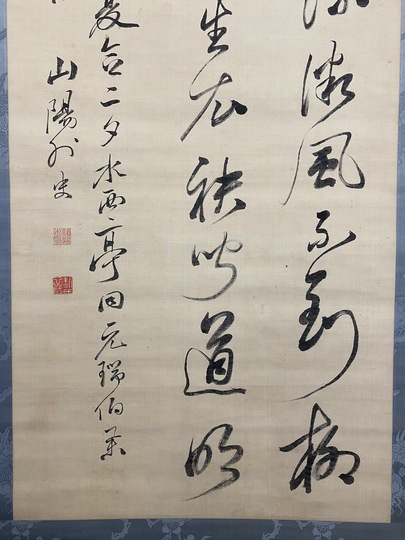 微風不到柳
生衣袂聞道明
念二夕水西亭同元瑞伯
山陽外史